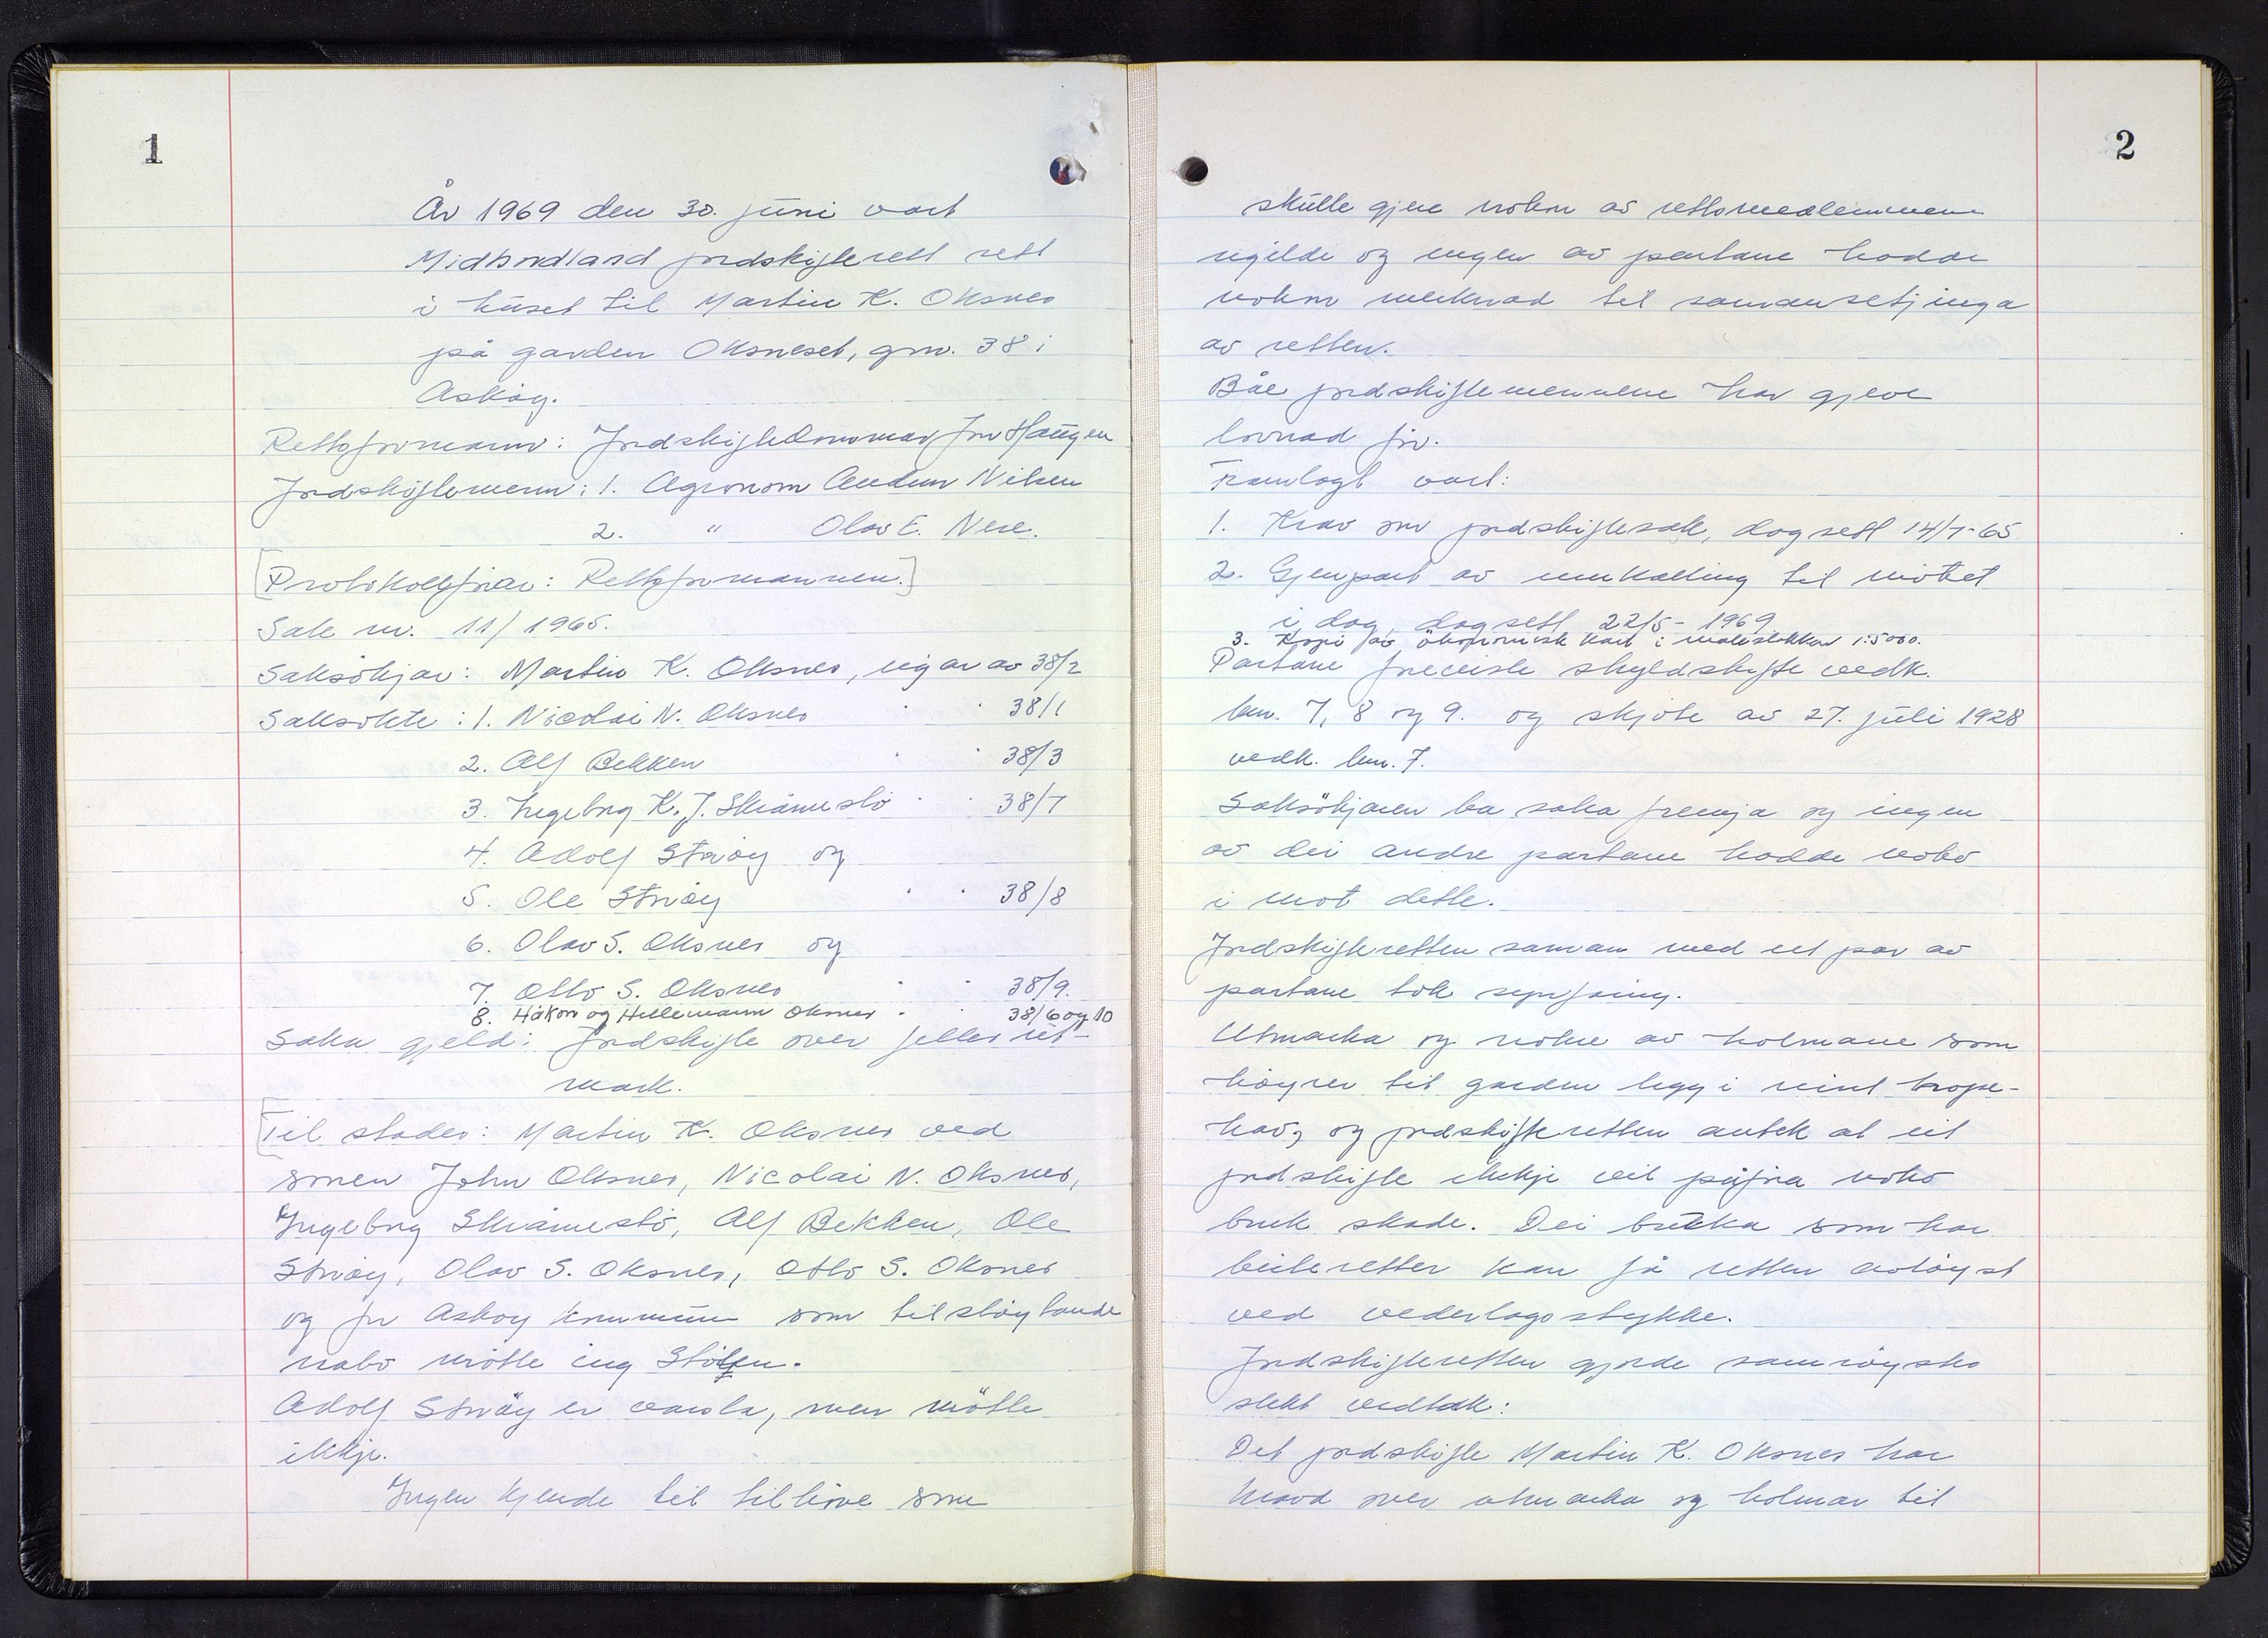 1
År 1969 den 30. juni vart
Midhordland jordskifterett sett
i huset til Martin K. Oksnes
på garden Oksneset, gnr. 38 i
Askøy.
Rettsformann: Jordskiftedommar Jon Haugen
Jordskiftemenn: 1. Agronom Audun Nilsen
2. " Olav E. Nese.
[Protokollførar: Rettsformannen.]
Sak nr. 11/1965.
Saksökjar: Martin K. Oksnes, eigar av 38/2
Saksökte: 1. Nicolai N. Oksnes " " 38/1
2. Alf Bekken " " 38/3
3. Ingeborg K. J. Skråmestö " " 38/7
4. Adolf Strøöy og
5. Ole Ströy " " 38/8
6. Olav S. Oksnes og
7. Otto S. Oksnes " " 38/9.
8. Håkon og Hillemann Oksnes " " 38/6 og 10
Saka gjeld: Jordskifte over felles ut-
mark.
[Til stades: Martin K. Oksnes ved
sonen John Oksnes, Nicolai N. Oksnes,
Ingeborg Skråmestö, Alf Bekken, Ole
Ströy, Olav S. Oksnes, Otto S. Oksnes
og for Askøy kommune som tilstøytande
nabo mötte ing
Adolf Ströy er varsla, men mötte
ikkje.
Ingen kjende til tilhöve som
2
skulle gjere nokon av rettsmedlemmene
ugilde og ingen av partane hadde
nokon merknad til samansetjinga
av retten.
Båe jordskiftemennene har gjeve
lovnad för.
Framlagt vart:
1. Krav om jordskiftesak, dagsett 14/7-65
2. Gjenpart av innkalling til mötet
i dag, dagsett 22/5-1969
3. Kopi av ökonomisk kart i målestokken 1:5000.
Partane framviste skyldskifte vedk.
bnr. 7, 8 og 9. og skjöte av 27. juli 1928
vedk. bnr. 7.
Saksökjaren ba saka fremja og ingen
av dei andre partane hadde noko
i mot dette.
Jordskifteretten saman med eit par av
partane tok synfaring.
Utmarka og nokre av holmane som
höyrer til garden ligg i reint trope-
hav, og jordskifteretten antek at eit
jordskifte ikkje vil påföra noko
bruk skade. Dei bruka som har
beiteretter kan få retten avlöyst
ved vederlagsstykke.
Jordskifteretten gjorde samröystes
slikt vedtak:
Det jordskifte Martin K. Oksnes har
kravd over utmarka og holmar til